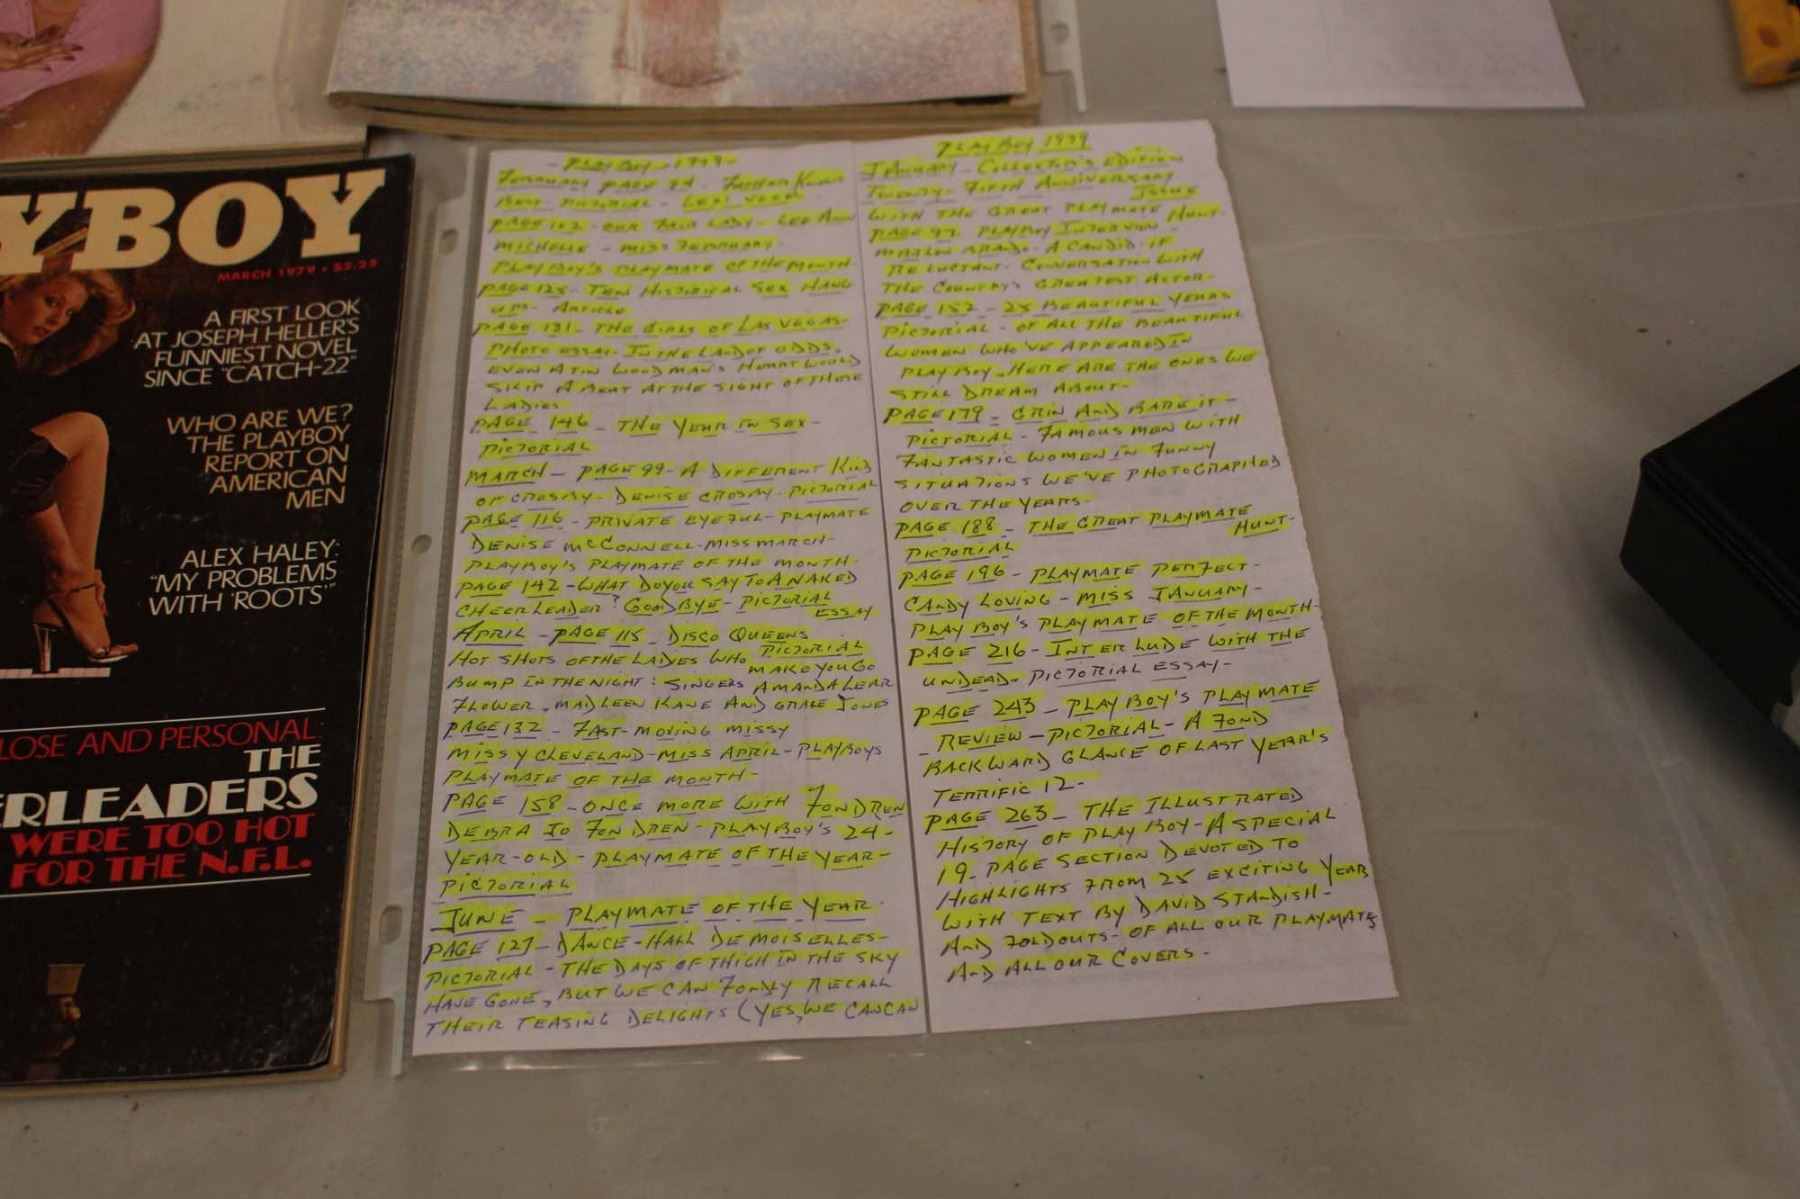 YBOY
MARCH 1979 • $2.25
A FIRST LOOK
AT JOSEPH HELLER'S
FUNNIEST NOVEL
SINCE "CATCH-22"
WHO ARE WE?
THE PLAYBOY
REPORT ON
AMERICAN
MEN
ALEX HALEY:
"MY PROBLEMS
WITH 'ROOTS'"
LOSE AND PERSONAL:
THE
ERLEADERS
WERE TOO HOT
FOR THE N.F.L.
- PLAYBOY - 1979 -
FEBRUARY PAGE 74 - FATHER KNOWS
BEST - PICTORIAL -
PAGE 102 - OUR FAIR LADY - LEE ANN
MICHELLE - MISS FEBRUARY -
PLAYBOY'S PLAYMATE OF THE MONTH -
PAGE 125 - TEN HISTORICAL SEX HANG
UPS - ARTICLE
PAGE 131 - THE GIRLS OF LAS VEGAS -
PHOTO ESSAY - IN THE LAND OF ODDS,
EVEN A TIN WOODMAN'S HEART WOULD
SKIP A BEAT AT THE SIGHT OF THESE
LADIES -
PAGE 146 - THE YEAR IN SEX -
PICTORIAL
MARCH - PAGE 99 - A DIFFERENT KIND
OF CROSBY - DENISE CROSBY - PICTORIAL
PAGE 116 - PRIVATE EYEFUL - PLAYMATE
DENISE MCCONNELL - MISS MARCH -
PLAYBOY'S PLAYMATE OF THE MONTH -
PAGE 142 - WHAT DO YOU SAY TO A NAKED
CHEERLEADER? GOODBYE - PICTORIAL
ESSAY
APRIL - PAGE 115 - DISCO QUEENS
PICTORIAL
HOT SHOTS OF THE LADIES WHO MAKE YOU GO
BUMP IN THE NIGHT: SINGERS AMANDA LEAR
FLOWER, MADLEEN KANE AND GRACE JONES
PAGE 132 - FAST-MOVING MISSY
MISSY CLEVELAND - MISS APRIL - PLAYBOYS
PLAYMATE OF THE MONTH -
PAGE 158 - ONCE MORE WITH FONDREN
DEBRA JO FONDREN - PLAYBOY'S 24-
YEAR-OLD - PLAYMATE OF THE YEAR -
PICTORIAL
JUNE - PLAYMATE OF THE YEAR -
PAGE 127 - DANCE-HALL DEMOISELLES -
PICTORIAL - THE DAYS OF THIGH IN THE SKY
HAVE GONE, BUT WE CAN FONDLY RECALL
THEIR TEASING DELIGHTS (YES, WE CANCAN
PLAYBOY 1979
JANUARY - COLLECTOR'S EDITION
TWENTY-FIFTH ANNIVERSARY
ISSUE
WITH THE GREAT PLAYMATE HUNT -
PAGE 97 - PLAYBOY INTERVIEW -
MARLON BRANDO - A CANDID - IF
RELUCTANT - CONVERSATION WITH
THE COUNTRY'S GREATEST ACTOR -
PAGE 152 - 25 BEAUTIFUL YEARS
PICTORIAL - OF ALL THE BEAUTIFUL
WOMEN WHO'VE APPEARED IN
PLAYBOY - HERE ARE THE ONES WE
STILL DREAM ABOUT -
PAGE 179 - GRIN AND BARE IT -
PICTORIAL - FAMOUS MEN WITH
FANTASTIC WOMEN IN FUNNY
SITUATIONS WE'VE PHOTOGRAPHED
OVER THE YEARS -
PAGE 188 - THE GREAT PLAYMATE
HUNT -
PICTORIAL
PAGE 196 - PLAYMATE PERFECT -
CANDY LOVING - MISS JANUARY -
PLAYBOY'S PLAYMATE OF THE MONTH -
PAGE 216 - INTERLUDE WITH THE
UNDEAD - PICTORIAL ESSAY -
PAGE 243 - PLAYBOY'S PLAYMATE
- REVIEW - PICTORIAL - A FOND
BACKWARD GLANCE OF LAST YEAR'S
TERRIFIC 12 -
PAGE 263 - THE ILLUSTRATED
HISTORY OF PLAYBOY - A SPECIAL
19-PAGE SECTION DEVOTED TO
HIGHLIGHTS FROM 25 EXCITING YEAR
WITH TEXT BY DAVID STANDISH -
AND FOLDOUTS - OF ALL OUR PLAYMATES
AND ALL OUR COVERS -